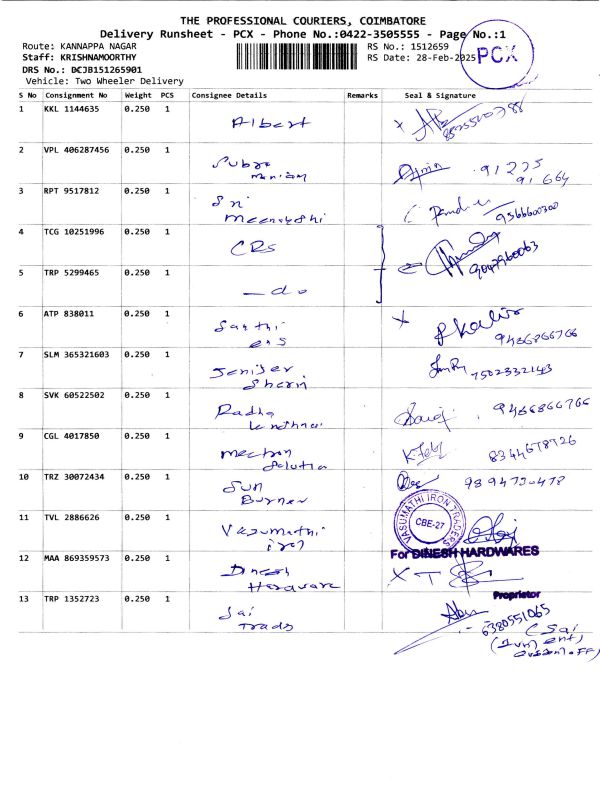 THE PROFESSIONAL COURIERS, COIMBATORE
Delivery Runsheet - PCX - Phone No.:0422-3505555 - Page No.:1
Route: KANNAPPA NAGAR
RS No.: 1512659
Staff: KRISHNAMOORTHY
RS Date: 28-Feb-2025
PCX
DRS No.: DCJB151265901
Vehicle: Two Wheeler Delivery
S No Consignment No Weight PCS Consignee Details Remarks Seal & Signature
1 KKL 1144635 0.250 1 Albert
2 VPL 406287456 0.250 1 Subra
91225
91664
3 RPT 9517812 0.250 1 Sri
Meenakshi 9566600300
4 TCG 10251996 0.250 1 CRs
9047960063
5 TRP 5299465 0.250 1 — do
6 ATP 838011 0.250 1 Santhi
9486866766
7 SLM 365321603 0.250 1 Jenifer
Sherin 7502332143
8 SVK 60522502 0.250 1 Radha 9486866766
9 CGL 4017850 0.250 1 8344678726
10 TRZ 30072434 0.250 1 Sun
Burner
11 TVL 2886626 0.250 1 Vasumathi
VASUMATHI IRON TRADERS
CBE-27
For DINESH HARDWARES
12 MAA 869359573 0.250 1 Dinesh
Hardware
Proprietor
13 TRP 1352723 0.250 1 Sai
Trads
6380551065